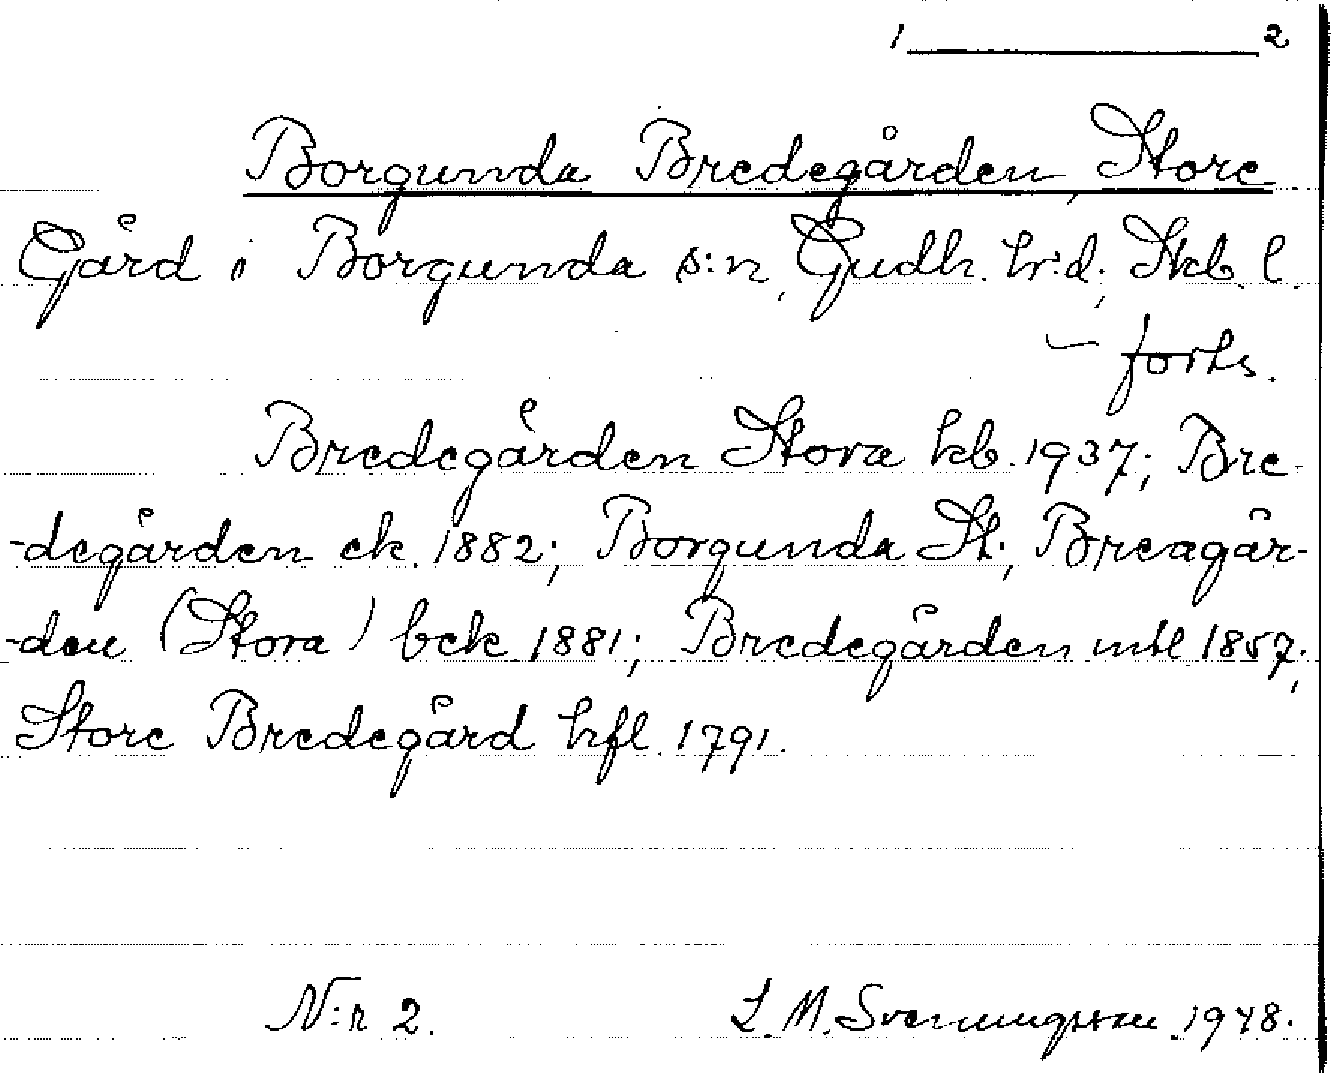 1 2
Borgunda Bredegården, Store
Gård i Borgunda s:n, Gudh. hr:d; Skb. l.
– forts.
Bredegården Stora kb. 1937; Bre-
-degården ek. 1882; Borgunda St:, Breagår-
-den (Stora) bek 1881; Bredegården mtl 1857;
Store Bredegård hfl. 1791.
N:r 2. L. M. Svenungsson 1948.